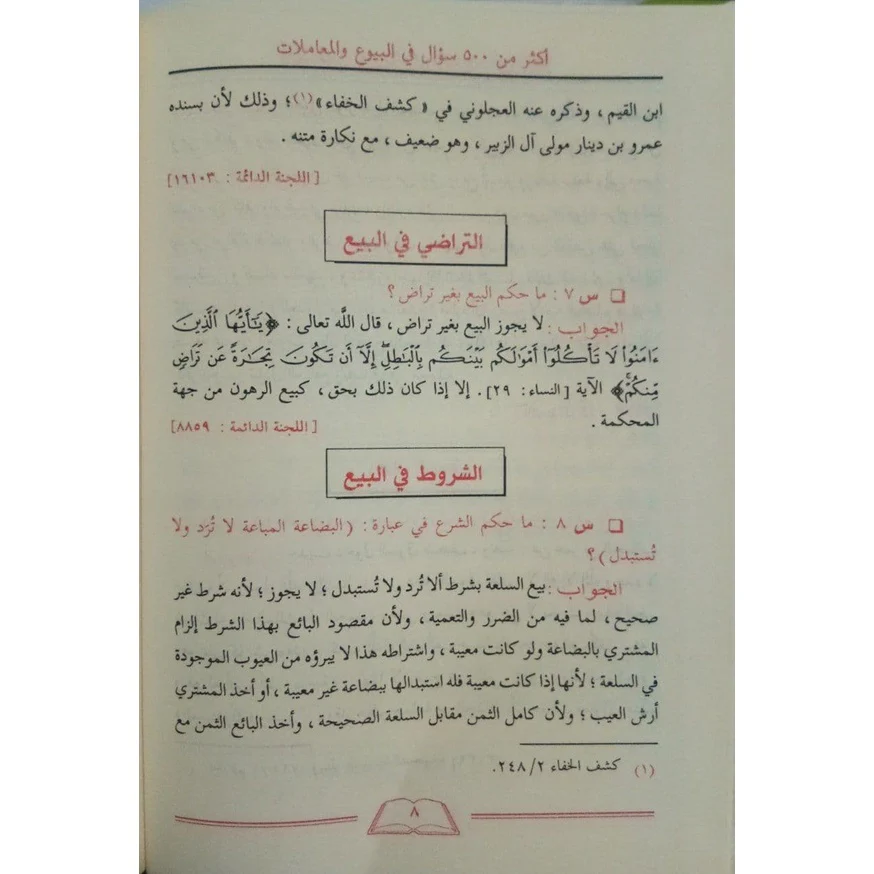 أكثر من ٥٠٠ سؤال في البيوع والمعاملات
ابن القيم ، وذكره عنه العجلوني في « كشف الخفاء »(١)؛ وذلك لأن بسنده
عمرو بن دينار مولى آل الزبير ، وهو ضعيف ، مع نكارة متنه .
[ اللجنة الدائمة : ١٦١٠٣]
التراضي في البيع
❑ س ٧ : ما حكم البيع بغير تراض ؟
الجواب : لا يجوز البيع بغير تراض ، قال اللَّه تعالى : ﴿يَٰٓأَيُّهَا ٱلَّذِينَ
ءَامَنُواْ لَا تَأْكُلُوٓاْ أَمْوَٰلَكُم بَيْنَكُم بِٱلْبَٰطِلِ إِلَّآ أَن تَكُونَ تِجَٰرَةً عَن تَرَاضٍ
مِّنكُمْۚ﴾ الآية [النساء : ٢٩]. إلا إذا كان ذلك بحق ، كبيع الرهون من جهة
المحكمة .
[ اللجنة الدائمة : ٨٨٥٩]
الشروط في البيع
❑ س ٨ : ما حكم الشرع في عبارة : (البضاعة المباعة لا تُرَد ولا
تُستبدل ) ؟
الجواب : بيع السلعة بشرط ألا تُرد ولا تُستبدل ؛ لا يجوز ؛ لأنه شرط غير
صحيح ، لما فيه من الضرر والتعمية ، ولأن مقصود البائع بهذا الشرط إلزام
المشتري بالبضاعة ولو كانت معيبة ، واشتراطه هذا لا يبرؤه من العيوب الموجودة
في السلعة ؛ لأنها إذا كانت معيبة فله استبدالها ببضاعة غير معيبة ، أو أخذ المشتري
أرش العيب ؛ ولأن كامل الثمن مقابل السلعة الصحيحة ، وأخذ البائع الثمن مع
(١) كشف الخفاء ٢٤٨/٢.
٨